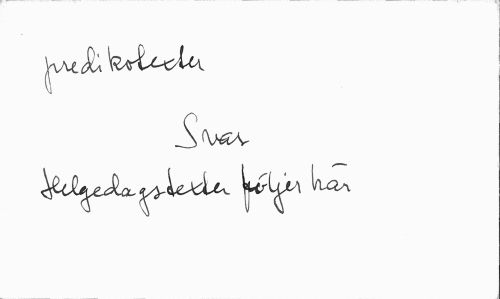 predikotexter
Svar
Helgedagstexter följer här